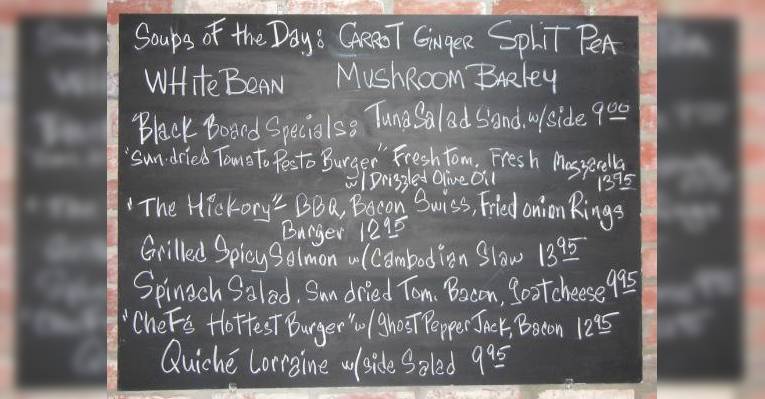 Soups of the Day: Carrot Ginger Split Pea
White Bean Mushroom Barley
"Black Board Specials: Tuna Salad Sand. w/side 9.00
"Sun-dried Tomato Pesto Burger" Fresh Tom. Fresh Mozzerella
w/ Drizzled Olive Oil 13.95
"The Hickory" BBQ, Bacon Swiss, Fried onion Rings
Burger 12.95
Grilled Spicy Salmon w/ Cambodian Slaw 13.95
Spinach Salad. Sun dried Tom. Bacon, goat cheese 9.95
"Chef's Hottest Burger" w/ Ghost Pepper Jack, Bacon 12.95
Quiché Lorraine w/side Salad 9.95